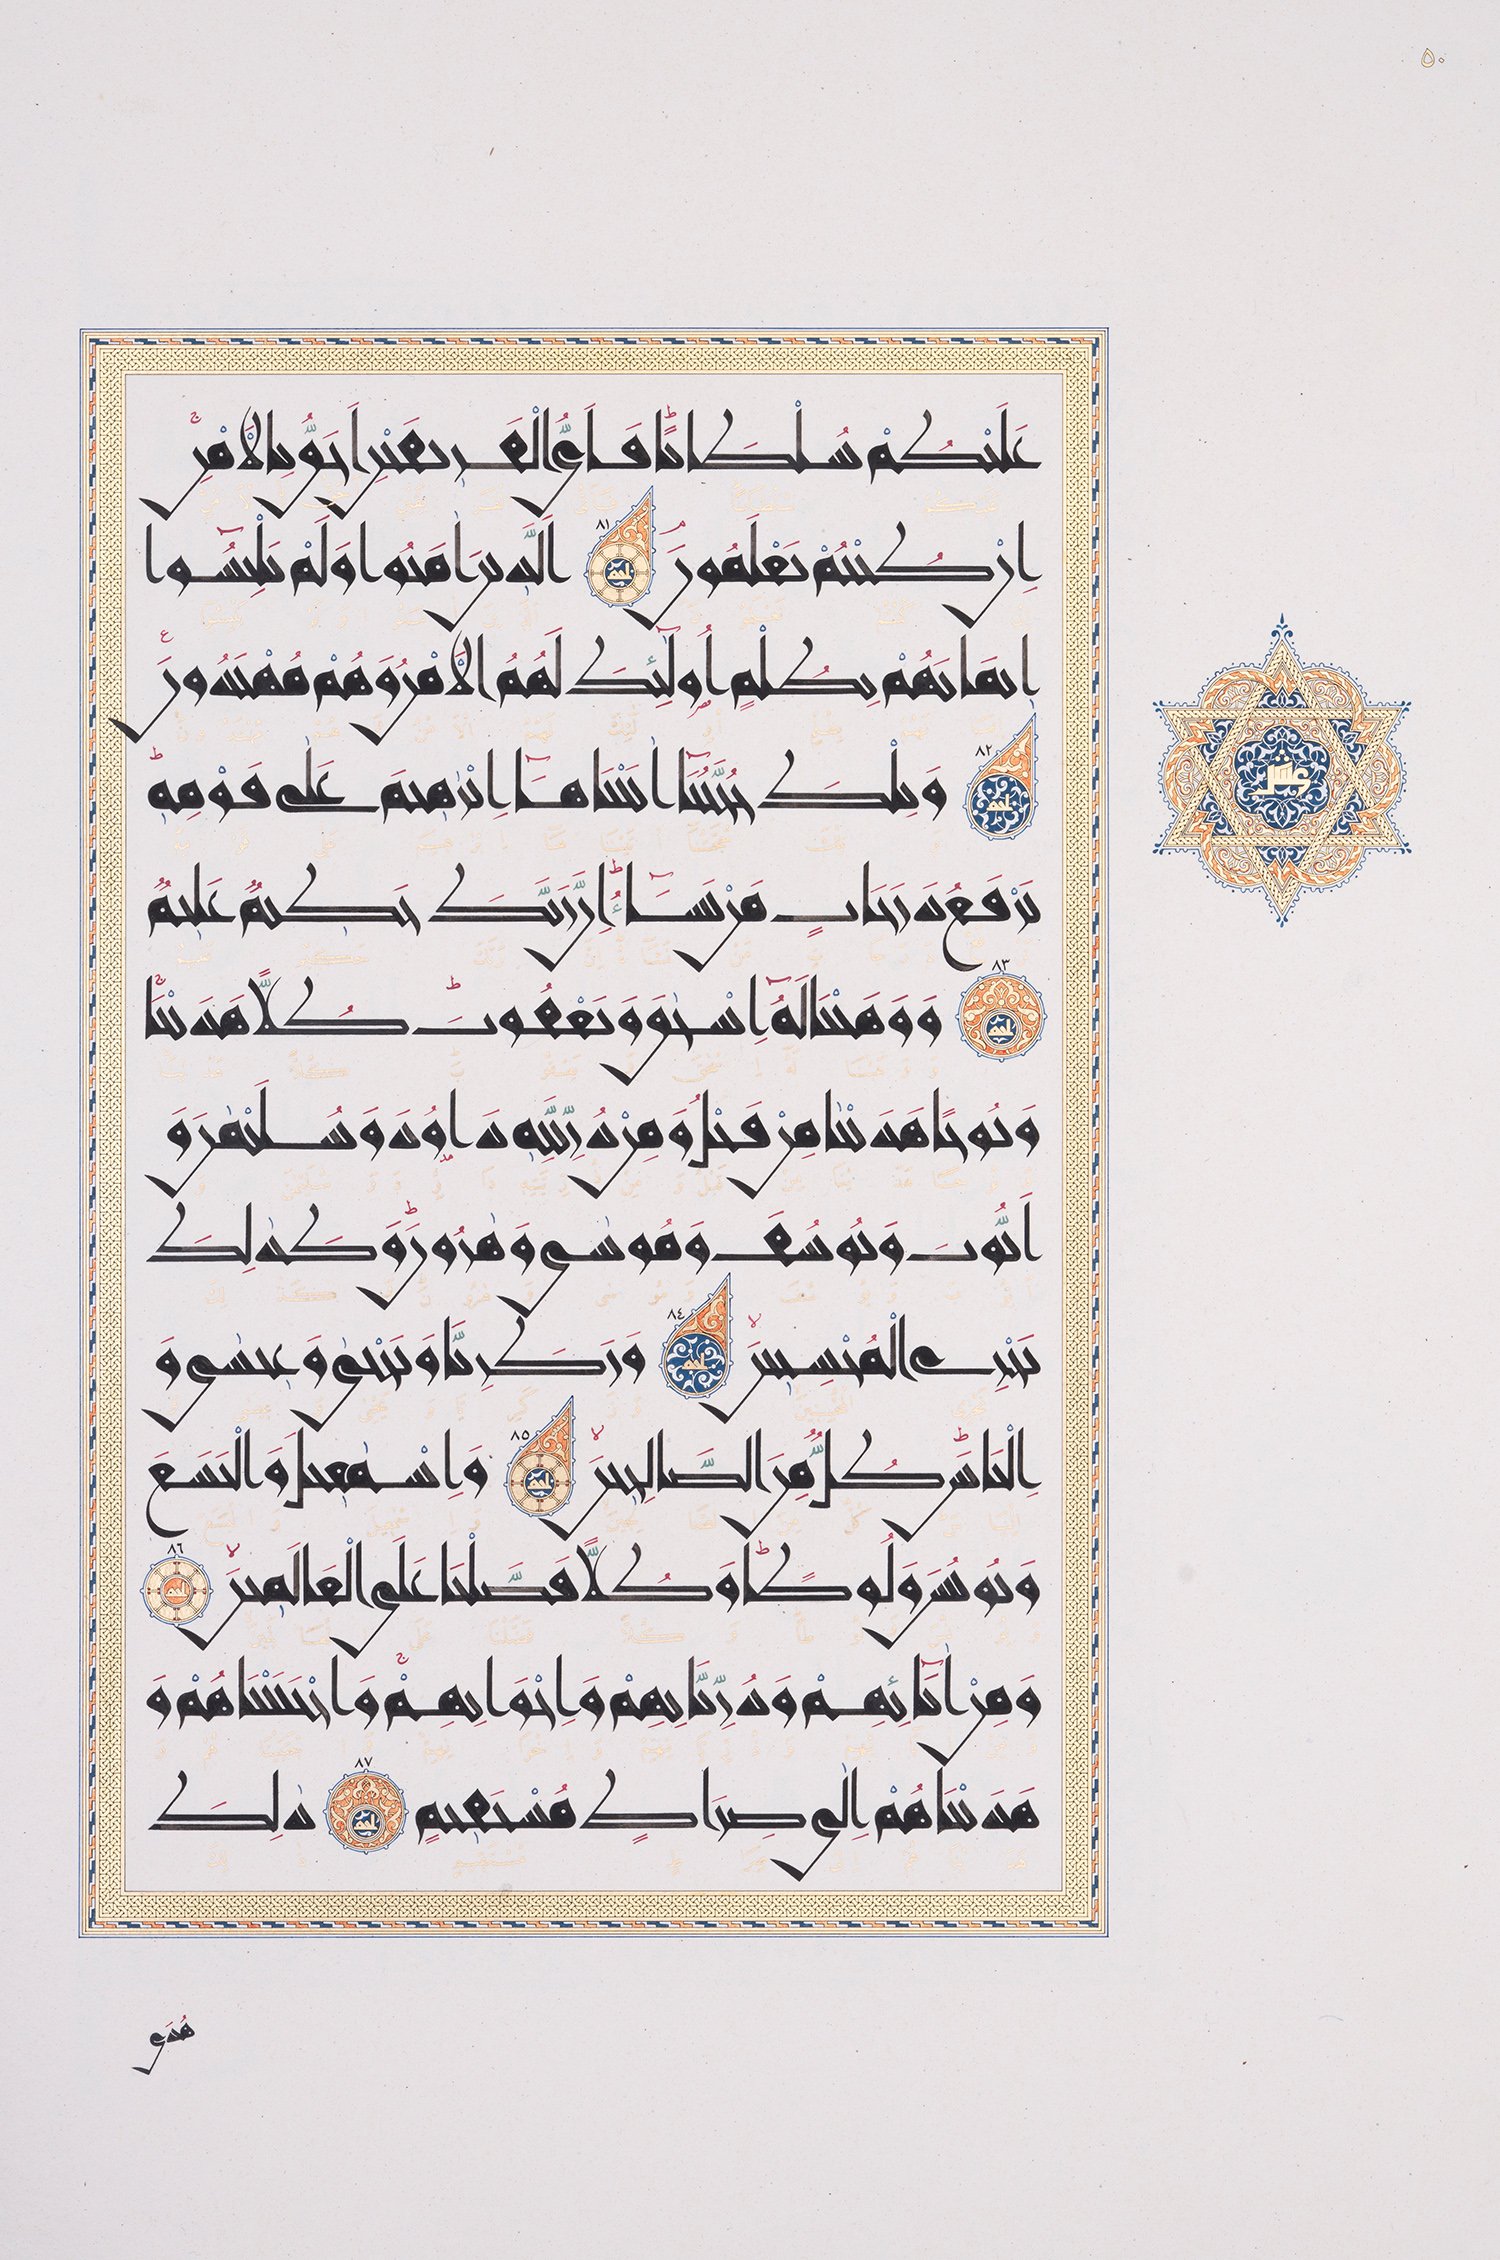 ٥٠
عَلَيْكُمْ سُلْطَانًا فَأَيُّ الْفَرِيقَيْنِ أَحَقُّ بِالْأَمْنِ
إِنْ كُنْتُمْ تَعْلَمُونَ ٨١ الَّذِينَ آمَنُوا وَلَمْ يَلْبِسُوا
إِيمَانَهُمْ بِظُلْمٍ أُولَٰئِكَ لَهُمُ الْأَمْنُ وَهُمْ مُهْتَدُونَ
٨٢ وَتِلْكَ حُجَّتُنَا آتَيْنَاهَا إِبْرَٰهِيمَ عَلَىٰ قَوْمِهِ
نَرْفَعُ دَرَجَاتٍ مَنْ نَشَاءُ إِنَّ رَبَّكَ حَكِيمٌ عَلِيمٌ
٨٣ وَوَهَبْنَا لَهُ إِسْحَٰقَ وَيَعْقُوبَ كُلًّا هَدَيْنَا
وَنُوحًا هَدَيْنَا مِنْ قَبْلُ وَمِنْ ذُرِّيَّتِهِ دَاوُدَ وَسُلَيْمَٰنَ وَ
أَيُّوبَ وَيُوسُفَ وَمُوسَىٰ وَهَٰرُونَ وَكَذَٰلِكَ
نَجْزِي الْمُحْسِنِينَ ٨٤ وَزَكَرِيَّا وَيَحْيَىٰ وَعِيسَىٰ وَ
إِلْيَاسَ كُلٌّ مِنَ الصَّالِحِينَ ٨٥ وَإِسْمَٰعِيلَ وَالْيَسَعَ
وَيُونُسَ وَلُوطًا وَكُلًّا فَضَّلْنَا عَلَى الْعَالَمِينَ ٨٦
وَمِنْ آبَائِهِمْ وَذُرِّيَّاتِهِمْ وَإِخْوَانِهِمْ وَاجْتَبَيْنَاهُمْ وَ
هَدَيْنَاهُمْ إِلَىٰ صِرَاطٍ مُسْتَقِيمٍ ٨٧ ذَٰلِكَ
عشر
هُدَى